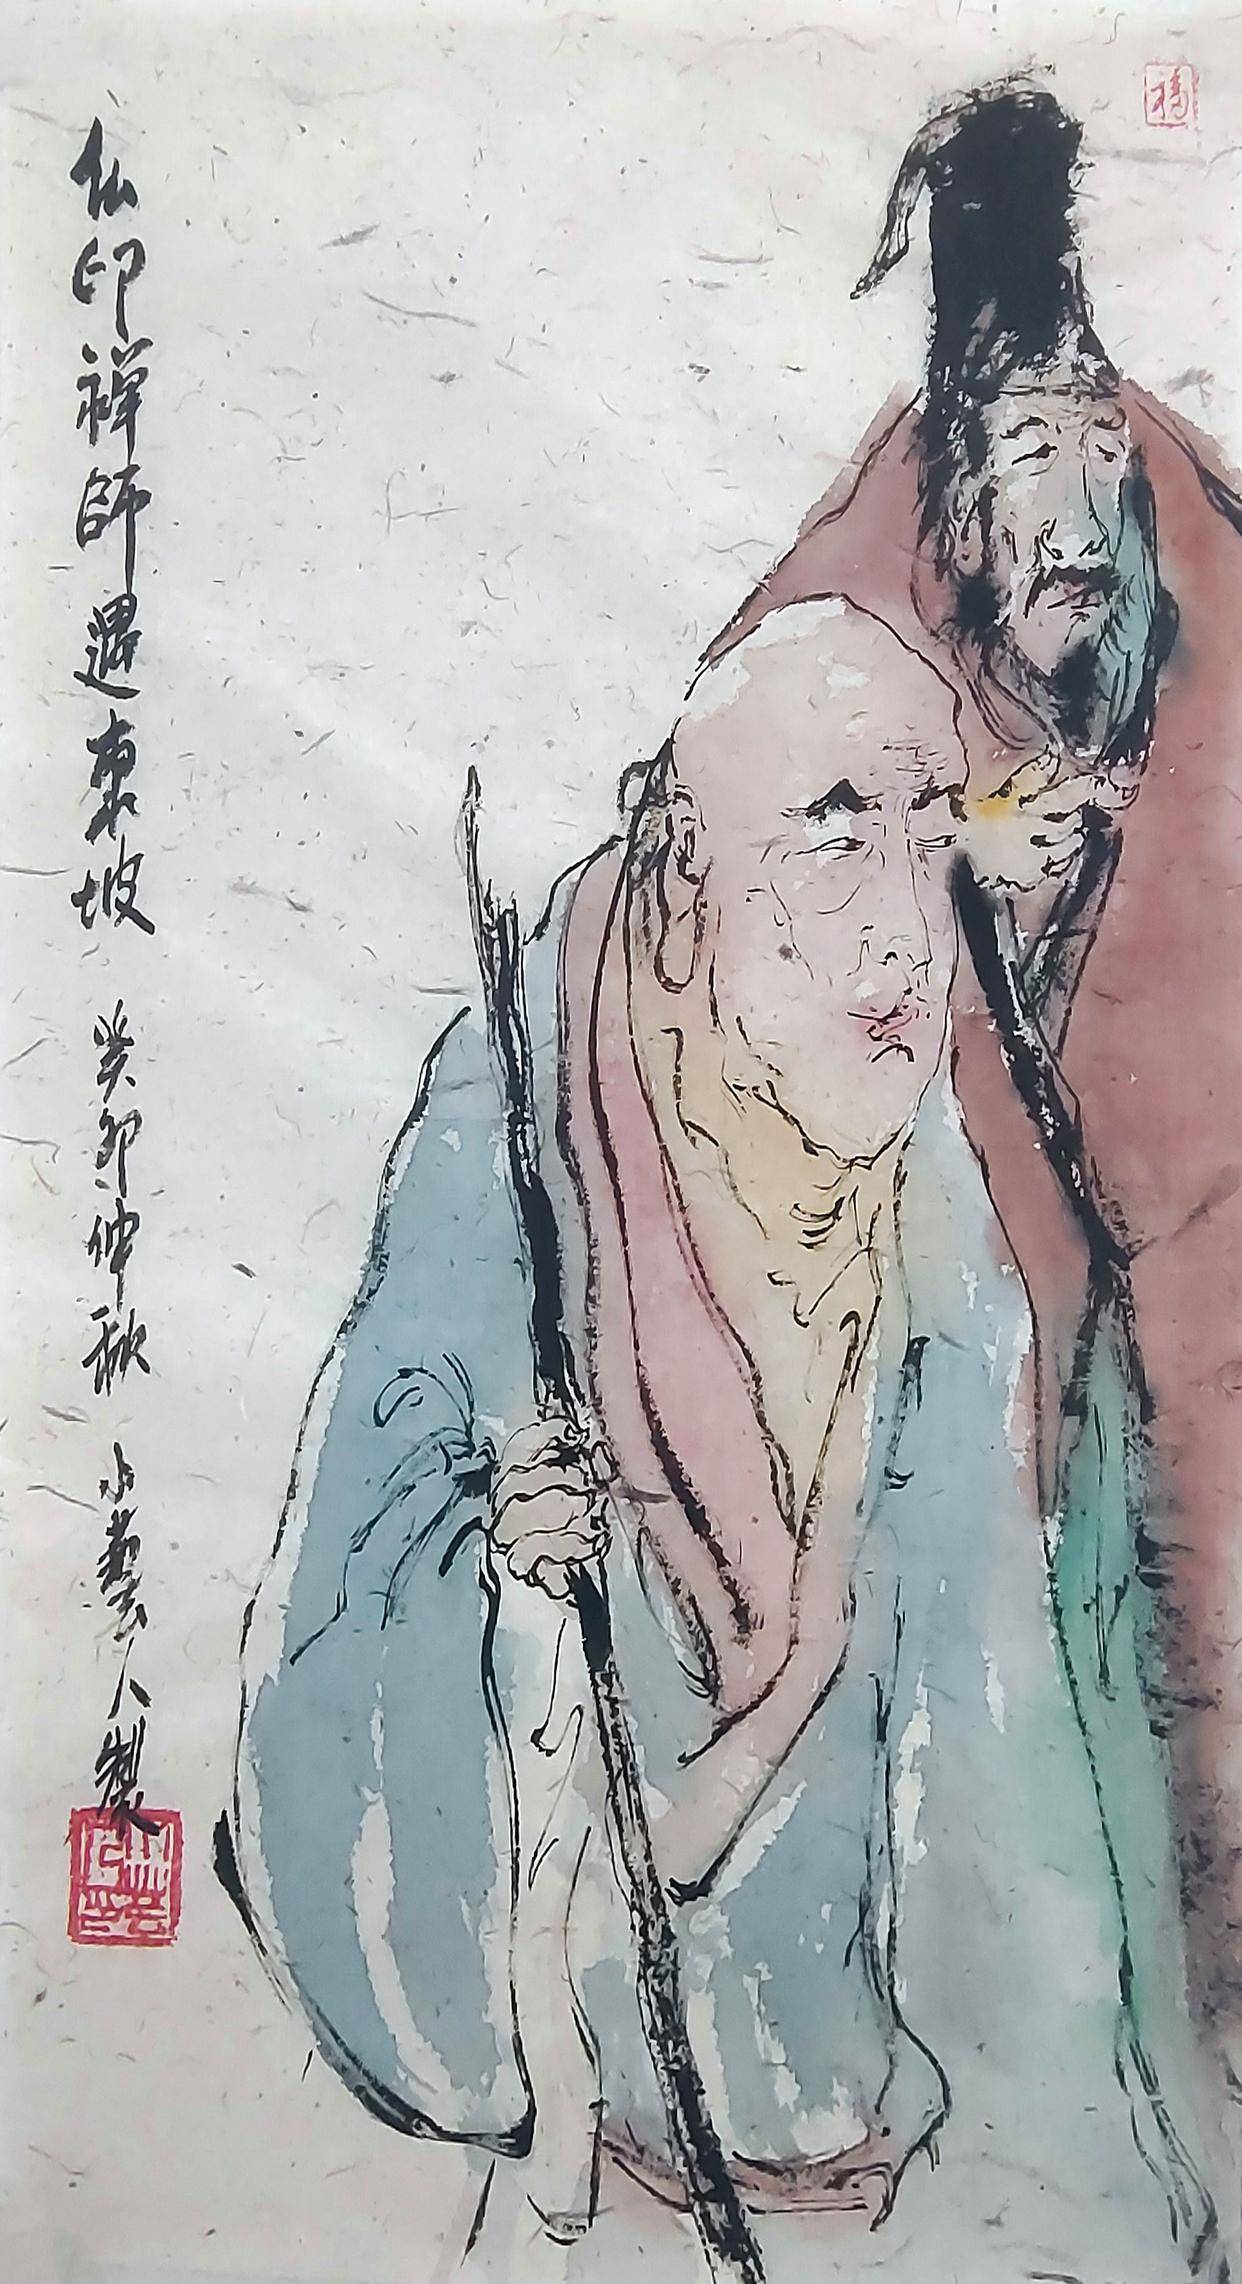 仏印禅師遇東坡 癸卯仲秋 小人製